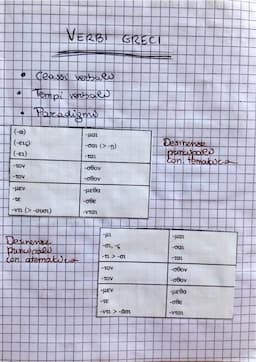 VERBI GRECI
• Classi verbali
• Tempi verbali
• Paradigma
(-ω) -μαι
(-εις) -σαι (> -ῃ)
(-ει) -ται
-τον -σθον
-τον -σθον
-μεν -μεθα
-τε -σθε
-ντι (> -ουσι) -νται
Desinenze
principali
con. tematica
Desinenze
principali
con. atematica
-μι -μαι
-σι, -ς -σαι
-τι > -σι -ται
-τον -σθον
-τον -σθον
-μεν -μεθα
-τε -σθε
-ντι > -ασι -νται